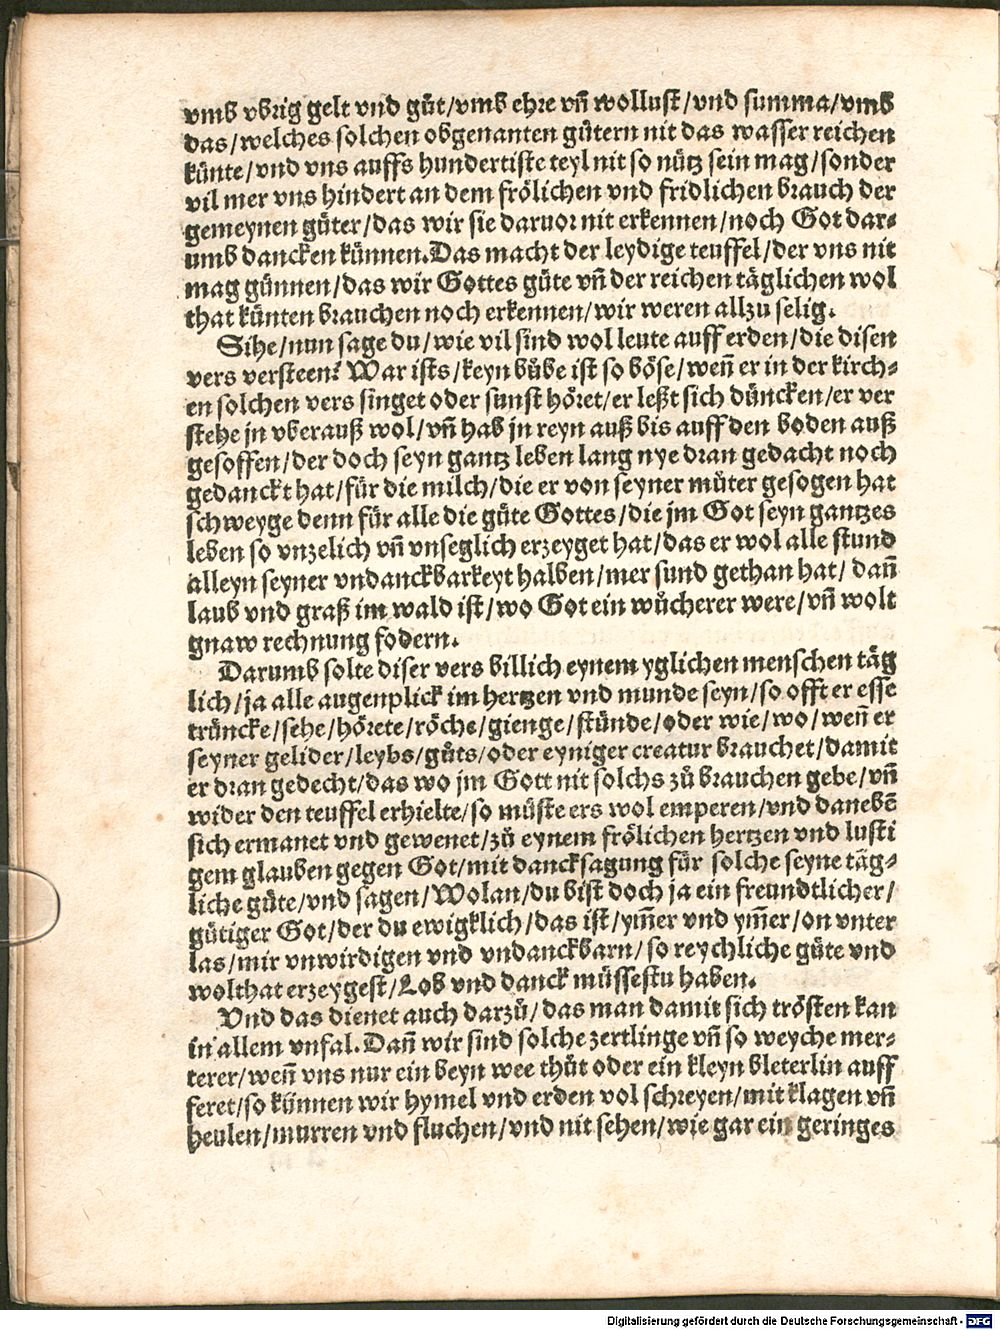 vmb vbrig gelt vnd gůt/vmb ehre vñ wollust/vnd summa/vmb
das/welches solchen obgenanten gütern nit das wasser reichen
künte/vnd vns auffs hundertiste teyl nit so nütz sein mag/sonder
vil mer vns hindert an dem frölichen vnd fridlichen brauch der
gemeynen güter/das wir sie daruor nit erkennen/noch Got dar-
umb dancken künnen. Das macht der leydige teuffel/der vns nit
mag günnen/das wir Gottes güte vñ der reichen täglichen wol
that künten brauchen noch erkennen/wir weren allzu selig.
Sihe/nun sage du/wie vil sind wol leute auff erden/die disen
vers versteen? War ists/keyn bůbe ist so böse/weñ er in der kirch-
en solchen vers singet oder sunst höret/er leßt sich düncken/er ver
stehe jn vberauß wol/vñ hab jn reyn auß bis auff den boden auß
gesoffen/der doch seyn gantz leben lang nye dran gedacht noch
gedanckt hat/für die milch/die er von seyner můter gesogen hat
schweyge denn für alle die güte Gottes/die jm Got seyn gantzes
leben so vnzelich vñ vnseglich erzeyget hat/das er wol alle stund
alleyn seyner vndanckbarkeyt halben/mer sund gethan hat/ dañ
laub vnd graß im wald ist/wo Got ein wůcherer were/vñ wolt
gnaw rechnung fodern.
Darumb solte diser vers billich eynem yglichen menschen täg
lich/ja alle augenplick im hertzen vnd munde seyn/so offt er esse
trüncke/sehe/hörete/röche/gienge/stünde/oder wie/wo/weñ er
seyner gelider/leybs/gůts/oder eyniger creatur brauchet/damit
er dran gedecht/das wo jm Gott nit solchs zů brauchen gebe/vñ
wider den teuffel erhielte/so můste ers wol emperen/vnd danebē
sich ermanet vnd gewenet/zů eynem frölichen hertzen vnd lusti
gem glauben gegen Got/mit dancksagung für solche seyne täg-
liche güte/vnd sagen/Wolan/du bist doch ja ein freundtlicher/
gütiger Got/der du ewigklich/das ist/ym̃er vnd ym̃er/on vnter
las/mir vnwirdigen vnd vndanckbarn/so reychliche güte vnd
wolthat erzeygest/Lob vnd danck müssestu haben.
Vnd das dienet auch darzů/das man damit sich trösten kan
in allem vnfal. Dañ wir sind solche zertlinge vñ so weyche mer-
terer/weñ vns nur ein beyn wee thůt oder ein kleyn bleterlin auff
feret/so künnen wir hymel vnd erden vol schreyen/mit klagen vñ
heulen/murren vnd fluchen/vnd nit sehen/wie gar ein geringes
Digitalisierung gefördert durch die Deutsche Forschungsgemeinschaft - DFG